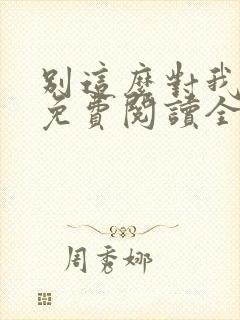 別這麼對我
免費閱讀全
周秀娜